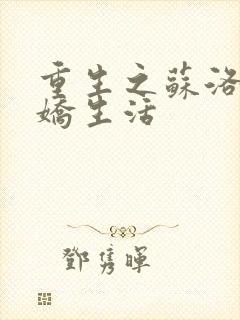 重生之蘇洛
嬌生活
鄧雋暉